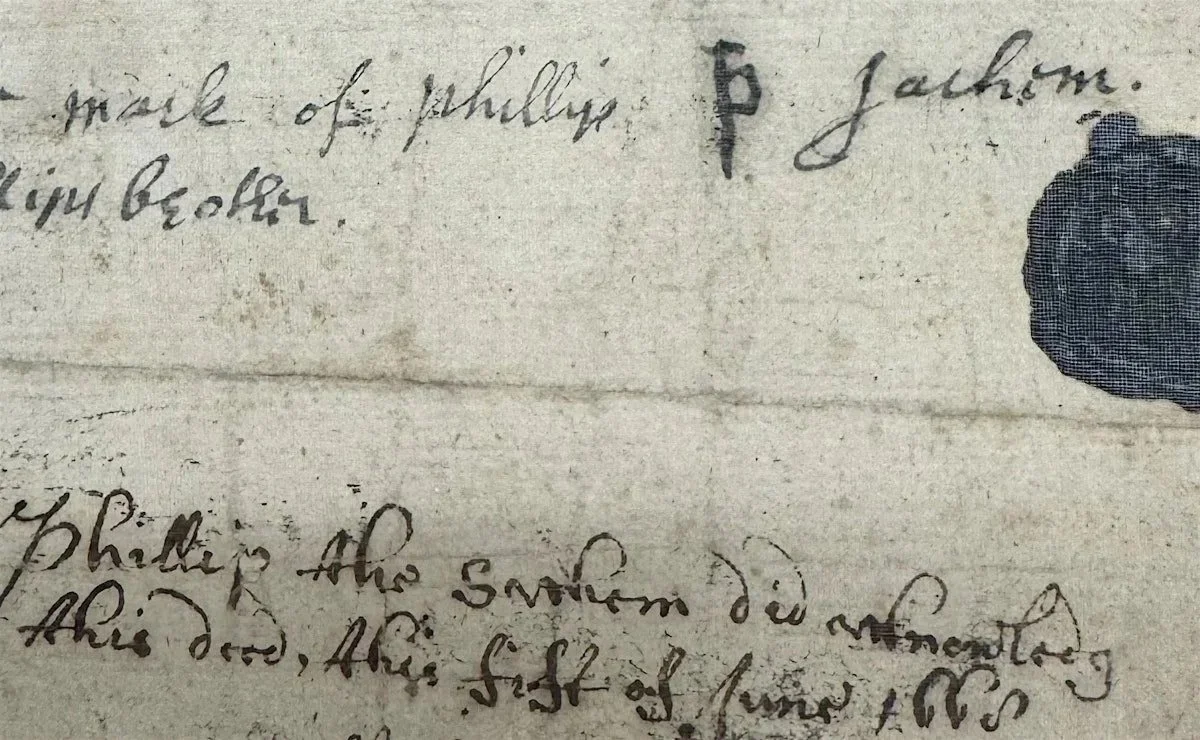 mark of phillip P sachem.
brother.
Phillip the Sachem did acknowledg
this deed, this fift of June 1668